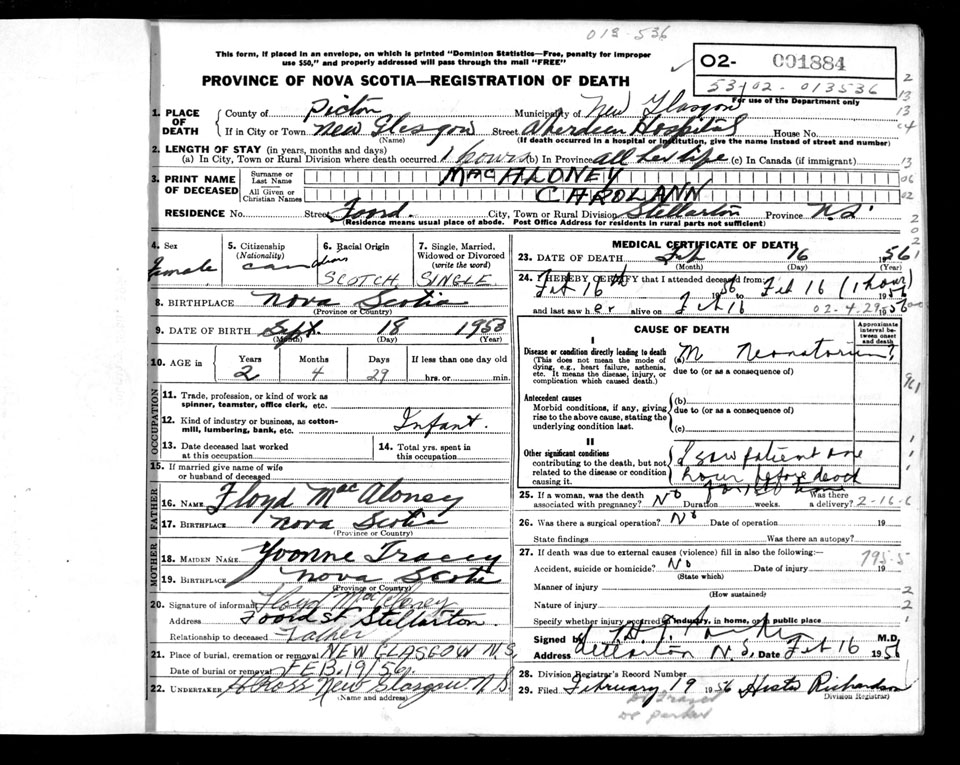 013-536
This form, if placed in an envelope, on which is printed "Dominion Statistics—Free, penalty for improper
use $50," and properly addressed will pass through the mail "FREE"
PROVINCE OF NOVA SCOTIA—REGISTRATION OF DEATH
02- 001884
53-02-013536
For use of the Department only
1. PLACE OF DEATH
County of Pictou Municipality of New Glasgow
If in City or Town New Glasgow Street Aberdeen Hospital House No.
(Name) (If death occurred in a hospital or institution, give the name instead of street and number)
2. LENGTH OF STAY (in years, months and days)
(a) In City, Town or Rural Division where death occurred 1 hour (b) In Province all her life (c) In Canada (if immigrant)
3. PRINT NAME OF DECEASED
Surname or Last Name MacALONEY
All Given or Christian Names CAROL ANN
RESIDENCE No. Street Foord City, Town or Rural Division Stellarton Province N.S.
(Residence means usual place of abode. Post Office Address for residents in rural parts not sufficient)
4. Sex Female
5. Citizenship (Nationality) Canadian
6. Racial Origin SCOTCH
7. Single, Married, Widowed or Divorced (write the word) SINGLE
8. BIRTHPLACE Nova Scotia
(Province or Country)
9. DATE OF BIRTH Sept. 18 1953
(Month) (Day) (Year)
10. AGE in Years 2 Months 4 Days 29 If less than one day old hrs. or min.
OCCUPATION
11. Trade, profession, or kind of work as spinner, teamster, office clerk, etc.
12. Kind of industry or business, as cotton-mill, lumbering, bank, etc. Infant.
13. Date deceased last worked at this occupation
14. Total yrs. spent in this occupation
15. If married give name of wife or husband of deceased
FATHER
16. NAME Floyd MacAloney
17. BIRTHPLACE Nova Scotia
(Province or Country)
MOTHER
18. MAIDEN NAME Yvonne Tracey
19. BIRTHPLACE Nova Scotia
(Province or Country)
20. Signature of informant Floyd MacAloney
Address Foord St Stellarton.
Relationship to deceased Father
21. Place of burial, cremation or removal NEW GLASGOW N.S.
Date of burial or removal FEB. 19/56
22. UNDERTAKER Ross New Glasgow N.S.
(Name and address)
MEDICAL CERTIFICATE OF DEATH
23. DATE OF DEATH Feb 16 1956
(Month) (Day) (Year)
24. I HEREBY CERTIFY that I attended deceased from:
Feb 16th 1956 to Feb 16 (1 hour) 1956
and last saw her alive on Feb 16 1956
02-4-29
CAUSE OF DEATH
Approximate interval between onset and death
I
Disease or condition directly leading to death
(This does not mean the mode of dying, e.g., heart failure, asthenia, etc. It means the disease, injury, or complication which caused death.)
(a) M Neonatorium ?
due to (or as a consequence of)
Antecedent causes
Morbid conditions, if any, giving rise to the above cause, stating the underlying condition last.
(b)
due to (or as a consequence of)
(c)
II
Other significant conditions contributing to the death, but not related to the disease or condition causing it.
I saw patient one
hour before death
25. If a woman, was the death associated with pregnancy? No Duration weeks. Was there a delivery? 2-16-6
26. Was there a surgical operation? No Date of operation 19
State findings Was there an autopsy?
27. If death was due to external causes (violence) fill in also the following:—
795-5
Accident, suicide or homicide? No Date of injury 19
(State which)
Manner of injury
(How sustained)
Nature of injury
Specify whether injury occurred in industry, in home, or in public place
Signed by M.D.
Address Stellarton N.S. Date Feb 16 1956
28. Division Registrar's Record Number
29. Filed February 19 1956 Hester Richardson
(Division Registrar)